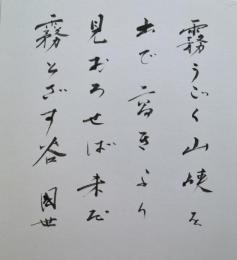 霧うごく山峡を
出で きふり
見おろせば来し
霧とざす谷 國世